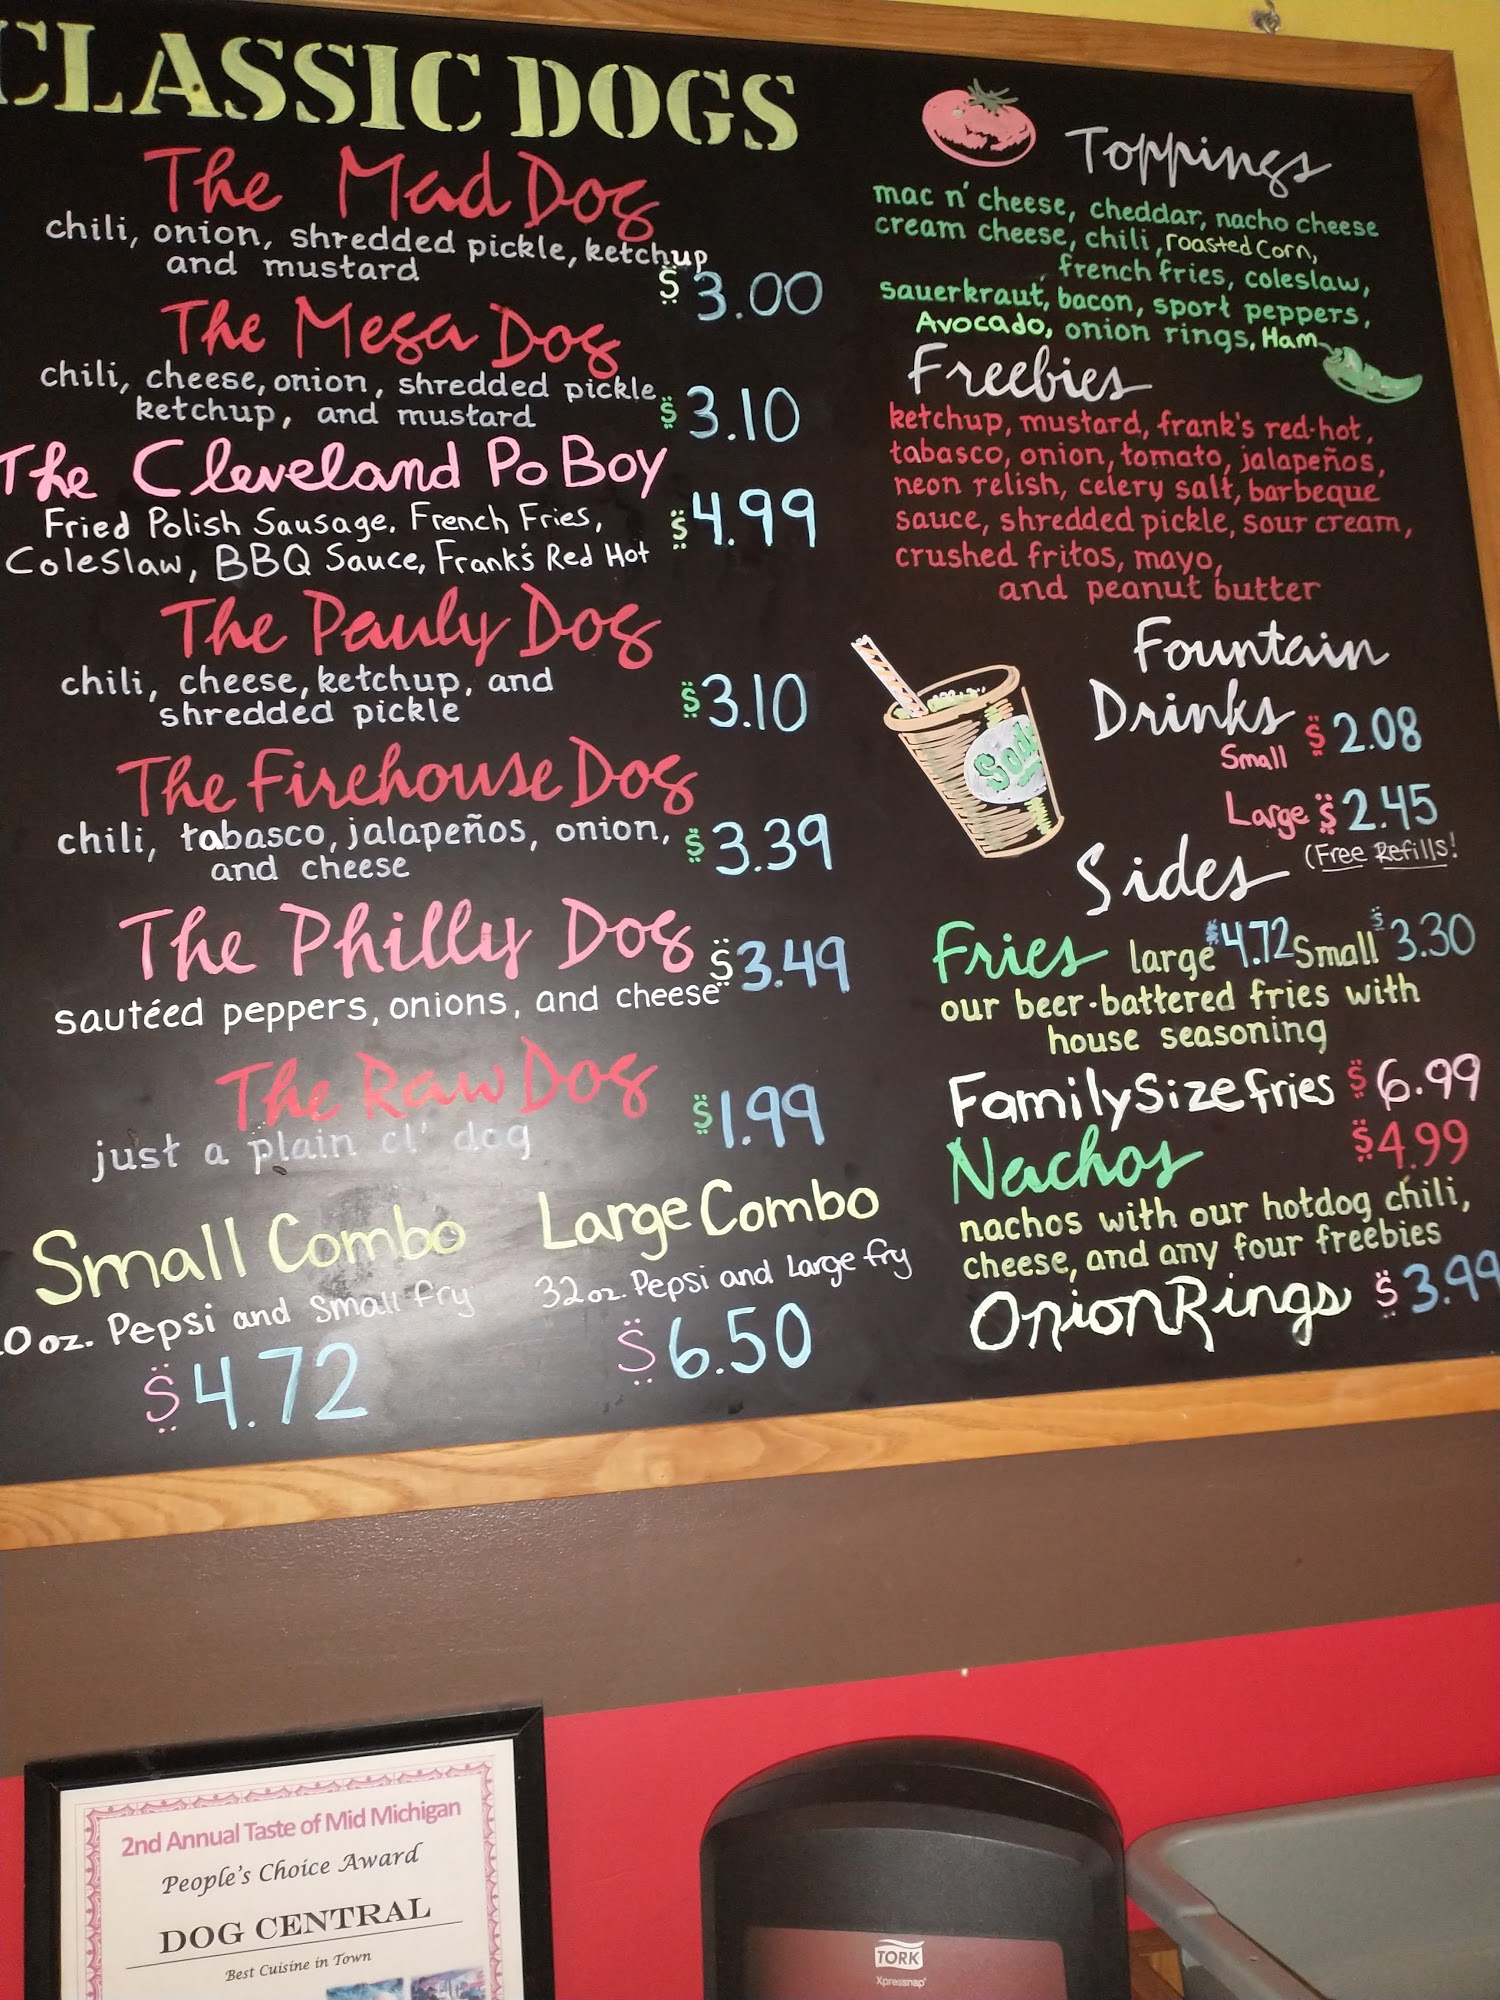 CLASSIC DOGS
The Mad Dog
chili, onion, shredded pickle, ketchup
and mustard
$3.00
The Mega Dog
chili, cheese, onion, shredded pickle,
ketchup, and mustard
$3.10
The Cleveland Po Boy
Fried Polish Sausage, French Fries,
Coleslaw, BBQ Sauce, Frank's Red Hot
$4.99
The Pauly Dog
chili, cheese, ketchup, and
shredded pickle
$3.10
The Firehouse Dog
chili, tabasco, jalapeños, onion,
and cheese
$3.39
The Philly Dog
$3.49
sautéed peppers, onions, and cheese
The Raw Dog
just a plain ol' dog
$1.99
Small Combo
0 oz. Pepsi and Small fry
$4.72
Large Combo
32 oz. Pepsi and Large fry
$6.50
Toppings
mac n' cheese, cheddar, nacho cheese
cream cheese, chili, roasted corn,
french fries, coleslaw,
sauerkraut, bacon, sport peppers,
Avocado, onion rings, Ham
Freebies
ketchup, mustard, frank's red-hot,
tabasco, onion, tomato, jalapeños,
neon relish, celery salt, barbeque
sauce, shredded pickle, sour cream,
crushed fritos, mayo,
and peanut butter
Soda
Fountain
Drinks
Small $2.08
Large $2.45
(Free Refills!
Sides
Fries large $4.72 Small $3.30
our beer-battered fries with
house seasoning
Family Size fries $6.99
Nachos $4.99
nachos with our hotdog chili,
cheese, and any four freebies
Onion Rings $3.99
2nd Annual Taste of Mid Michigan
People's Choice Award
DOG CENTRAL
Best Cuisine in Town
TORK
Xpressnap